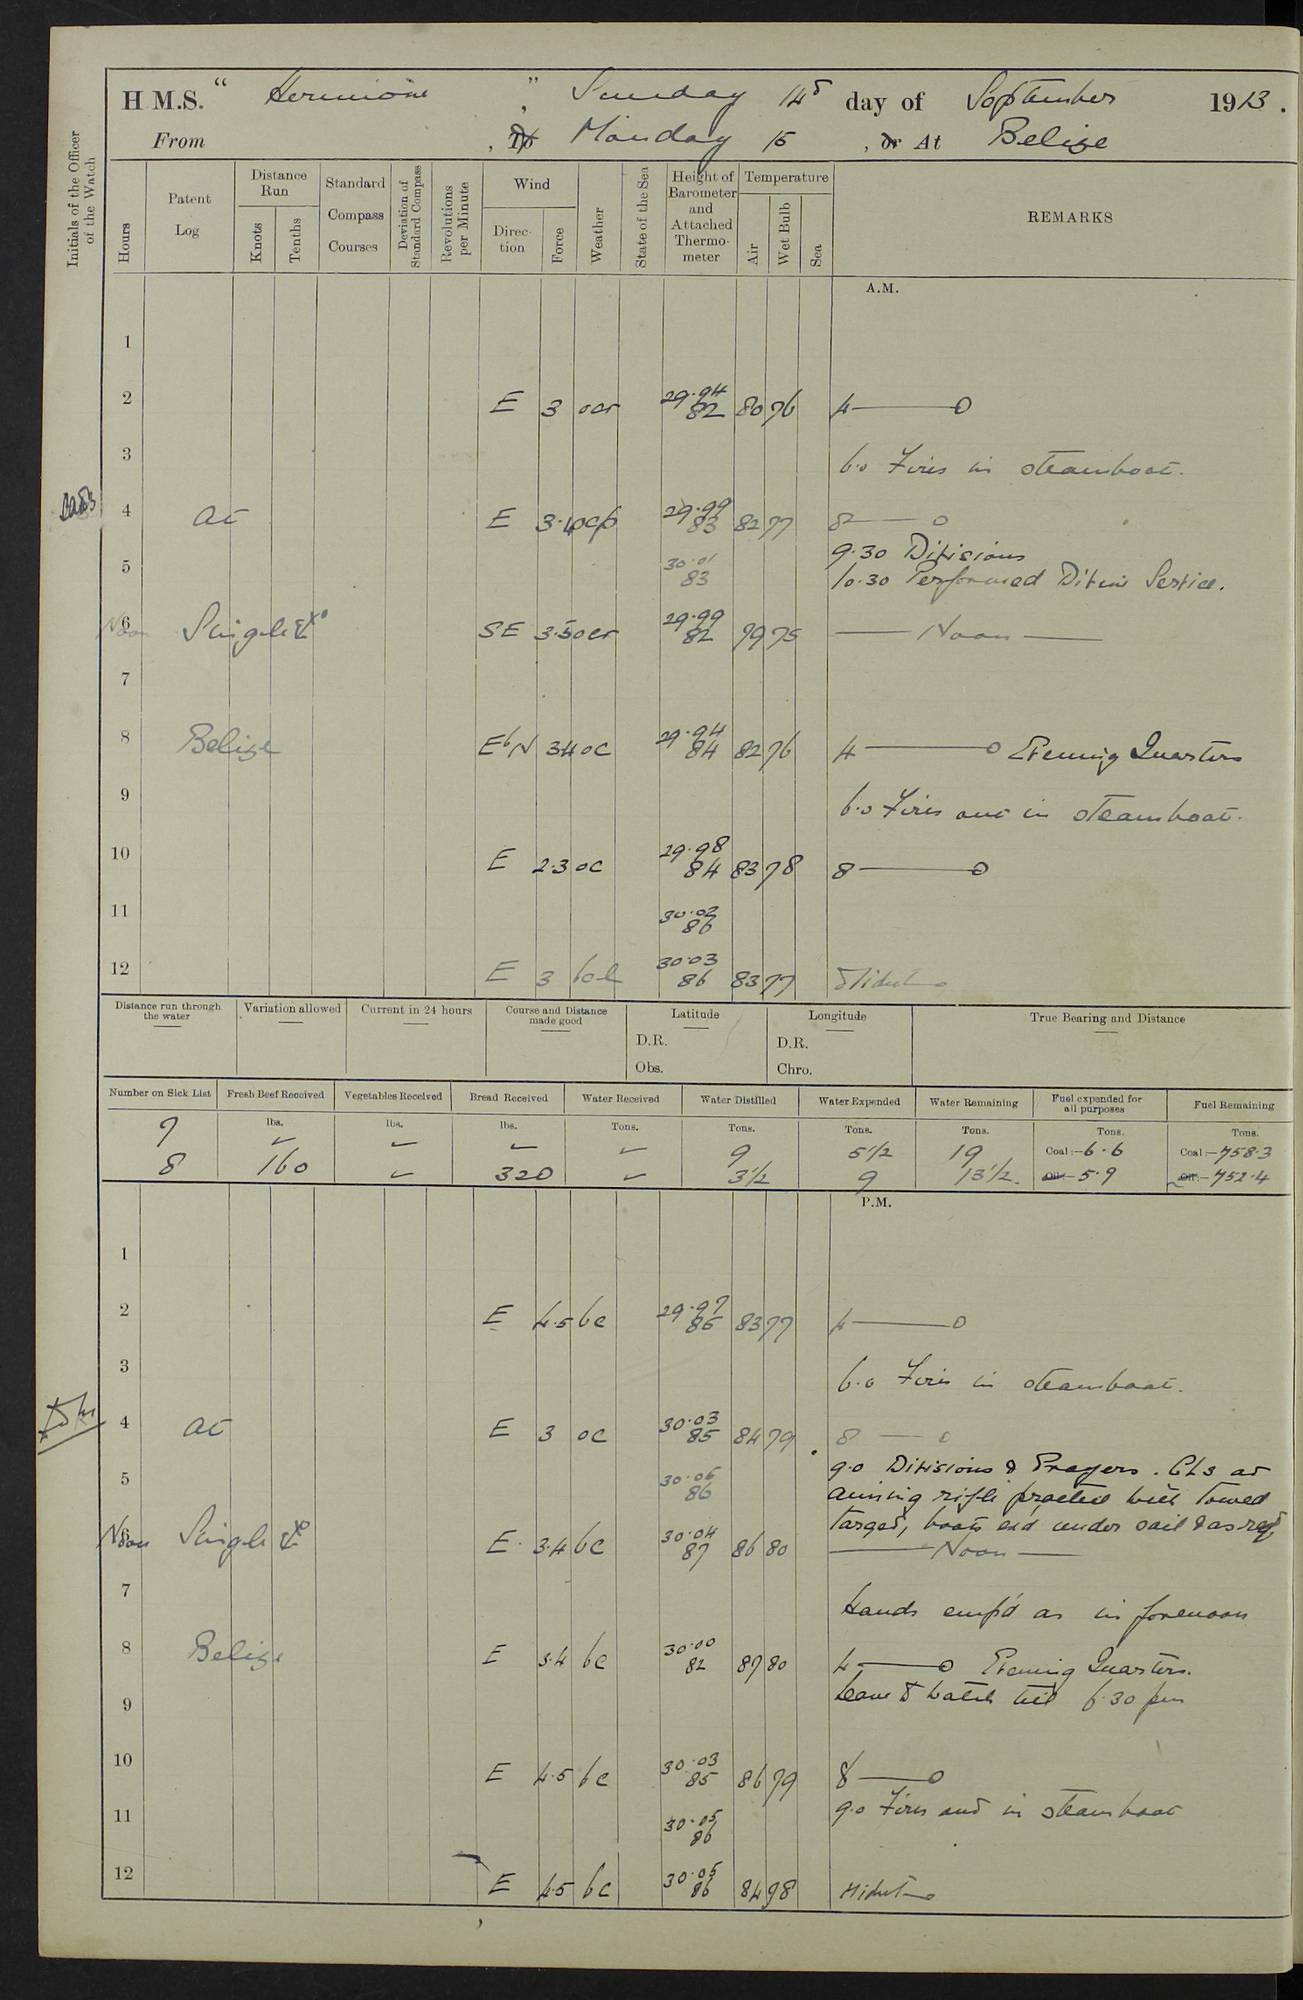 H.M.S. " Hermione " , Sunday 14th day of September 1913.
From , To Monday 15 , or At Belize
Initials of the Officer of the Watch
Hours
Patent Log
Distance Run
Knots
Tenths
Standard Compass Courses
Deviation of Standard Compass
Revolutions per Minute
Wind
Direction
Force
Weather
State of the Sea
Height of Barometer and Attached Thermometer
Temperature
Air
Wet Bulb
Sea
REMARKS
A.M.
1
2 E 3 ocr 29.94 82 80 76 4 ——— 0
3 6.0 Fires in steamboat.
4 At E 3.4 ocp 29.99 83 82 77 8 —— 0
9.30 Divisions
5 30.01 83 10.30 Performed Divine Service.
6 Noon Single SE 3.5 ocr 29.99 82 79 75 —— Noon ——
7
8 Belize EbN 3.4 oc 29.94 84 82 76 4 ——— 0 Evening Quarters
9 6.0 Fires out in steamboat.
10 E 2.3 oc 29.98 84 83 78 8 ——— 0
11 30.02 86
12 E 3 bcl 30.03 86 83 77 Midnt
Distance run through the water
Variation allowed
Current in 24 hours
Course and Distance made good
Latitude
D.R.
Obs.
Longitude
D.R.
Chro.
True Bearing and Distance
Number on Sick List
Fresh Beef Received
Vegetables Received
Bread Received
Water Received
Water Distilled
Water Expended
Water Remaining
Fuel expended for all purposes
Fuel Remaining
lbs. lbs. lbs. Tons. Tons. Tons. Tons. Tons. Tons.
7 ✓ ✓ ✓ ✓ 9 5 1/2 19 Coal:—6.6 Coal:—758.3
8 160 ✓ 320 ✓ 3 1/2 9 13 1/2 Oil:—5.9 Oil:—752.4
P.M.
1
2 E 4.5 bc 29.97 85 83 77 4 ——— 0
3 6.0 Fires in steamboat.
4 At E 3 oc 30.03 85 84 79 8 —— 0
9.0 Divisions & Prayers. CLs at
5 30.06 86 aiming rifle practice with towed
target, boats exd under sail & as req
6 Noon Single E. 3.4 bc 30.04 87 86 80 —— Noon ——
7 Hands emp'd as in forenoon
8 Belize E 3.4 bc 30.00 82 87 80 4 —— 0 Evening Quarters.
Leave to watch till 6.30 pm
9
10 E 4.5 bc 30.03 85 86 79 8 —— 0
9.0 Fires out in steamboat
11 30.05 86
12 E 4.5 bc 30.05 86 84 98 Midnt